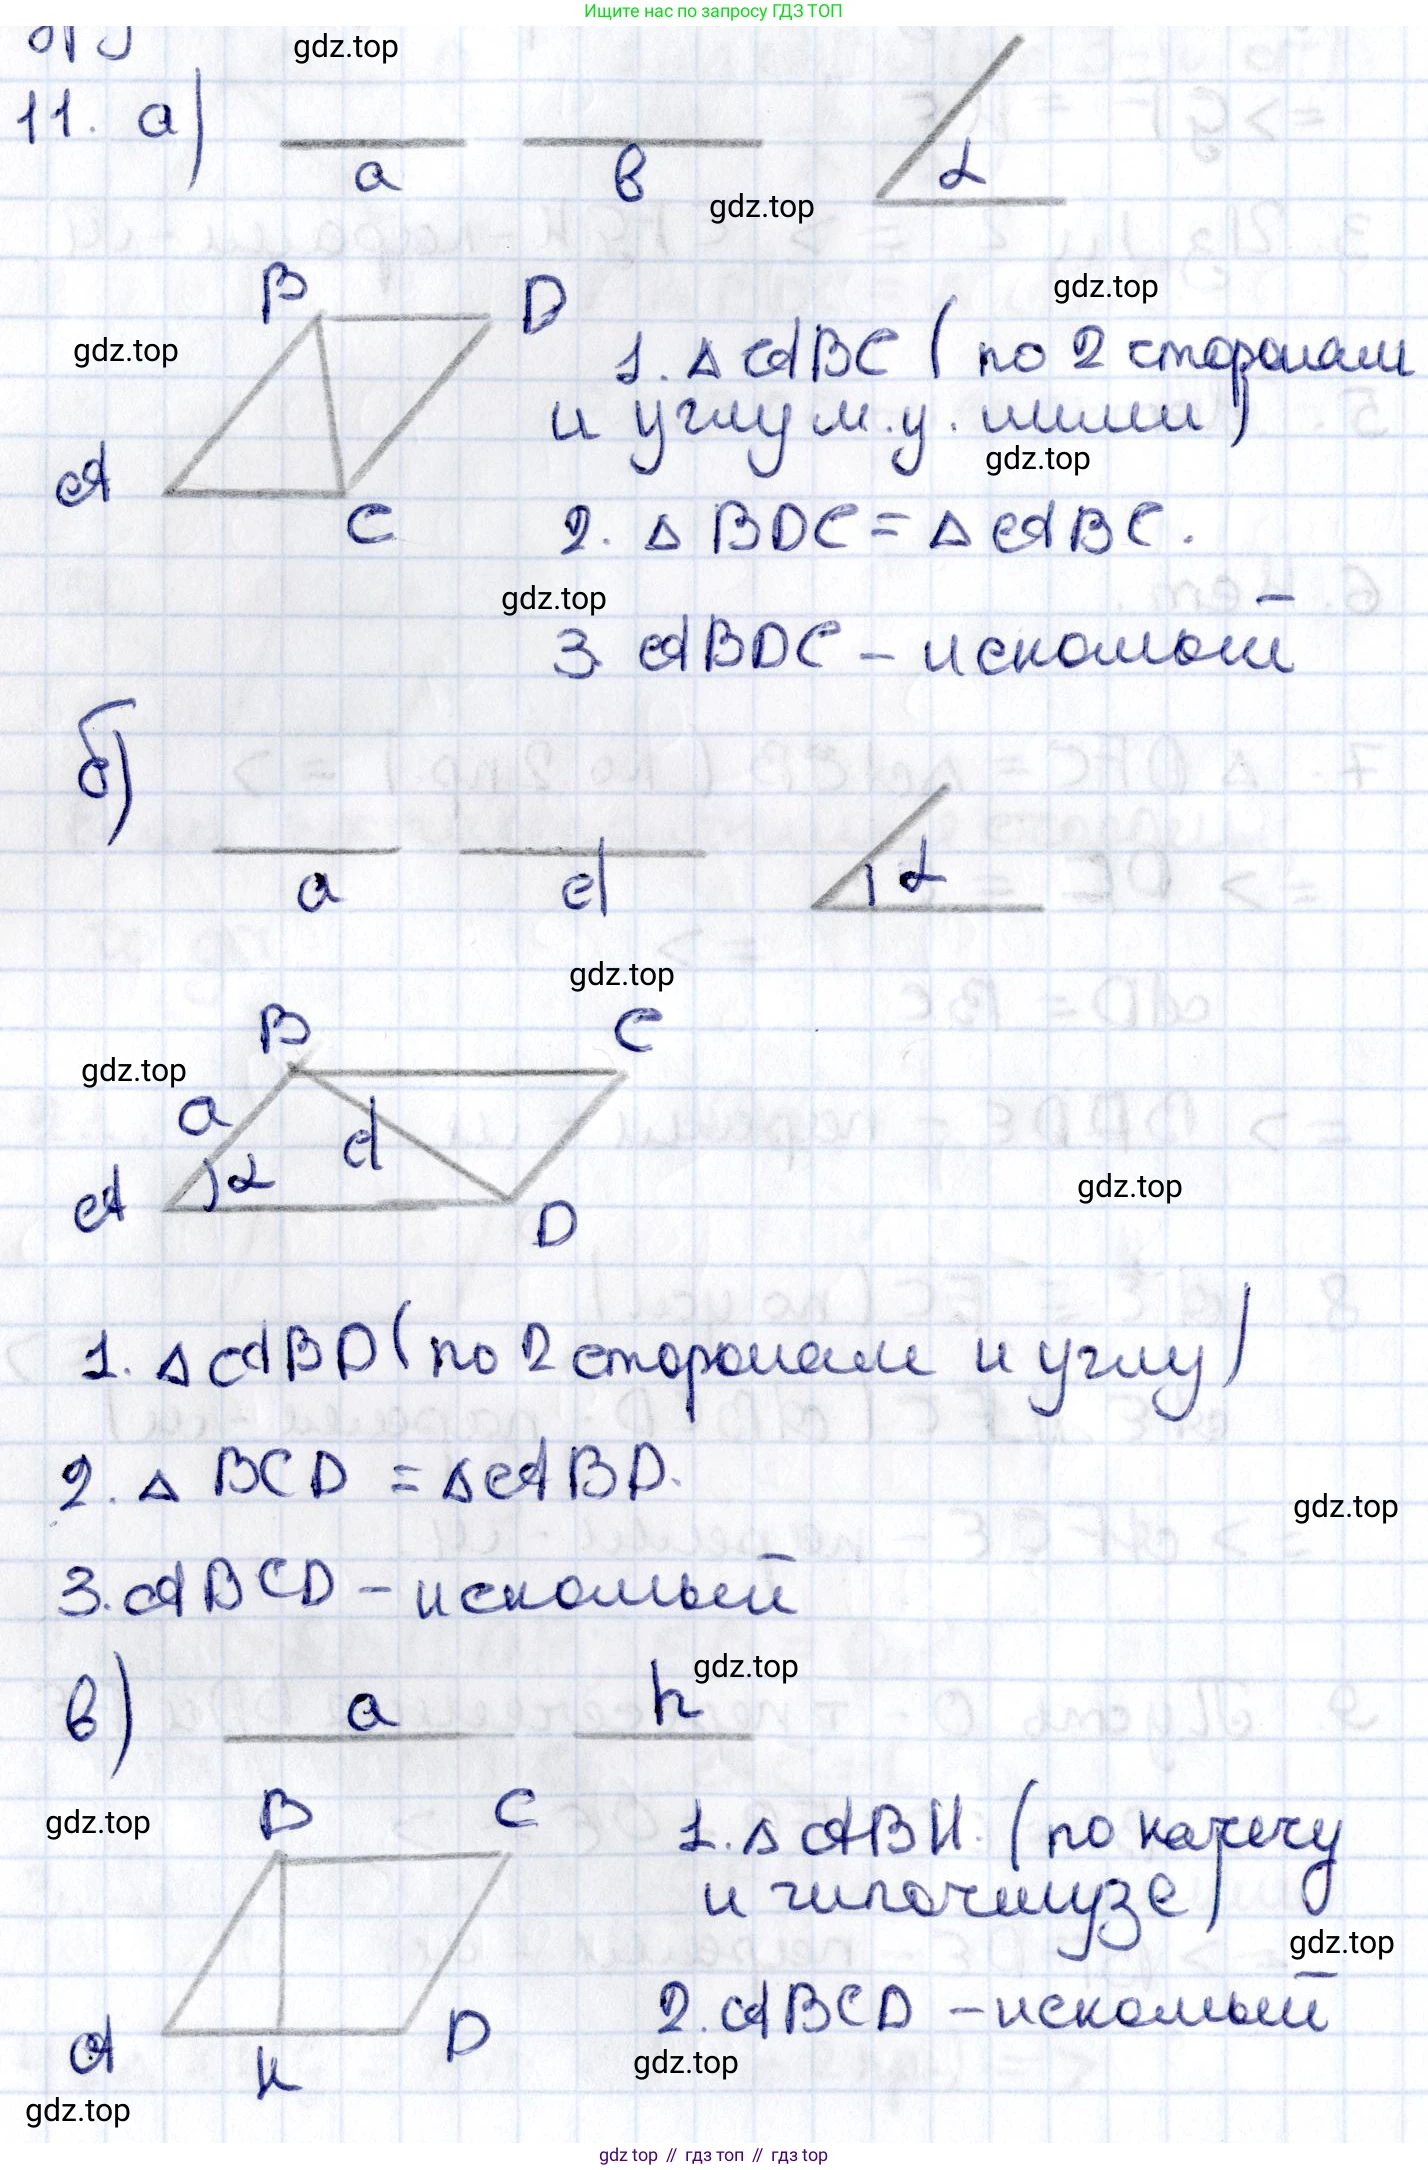 Ищите нас по запросу ГДЗ ТОП
gdz.top
11. а)
a
b
α
gdz.top
B
D
gdz.top
gdz.top
1. △ ABC (по 2 сторонам
и углу м.у. ними)
gdz.top
A
C
2. △ BDC = △ ABC.
gdz.top
3. ABDC – искомый
б)
a
d
α
gdz.top
B
C
gdz.top
a
d
α
A
gdz.top
D
1. △ ABD (по 2 сторонам и углу)
2. △ BCD = △ ABD.
gdz.top
3. ABCD – искомый
gdz.top
в)
a
h
B
C
gdz.top
1. △ ABH. (по катету
и гипотенузе)
gdz.top
2. ABCD – искомый
A
H
D
gdz.top
gdz.top
gdz top // гдз топ // gdz top